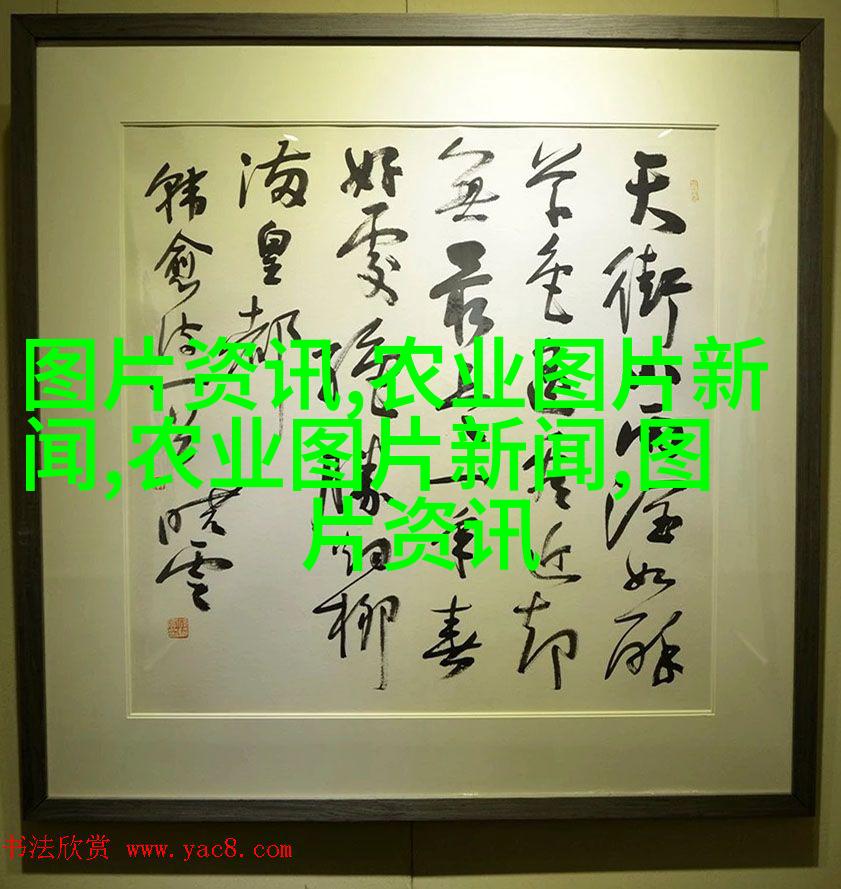 天街小雨潤如酥
草色遥看近却
無最是一年春
好處絕勝烟柳
滿皇都
韓愈詩一首 曉雲
图片资讯,农业图片新
闻,农业图片新闻,图
片资讯
书法欣赏 www.yac8.com